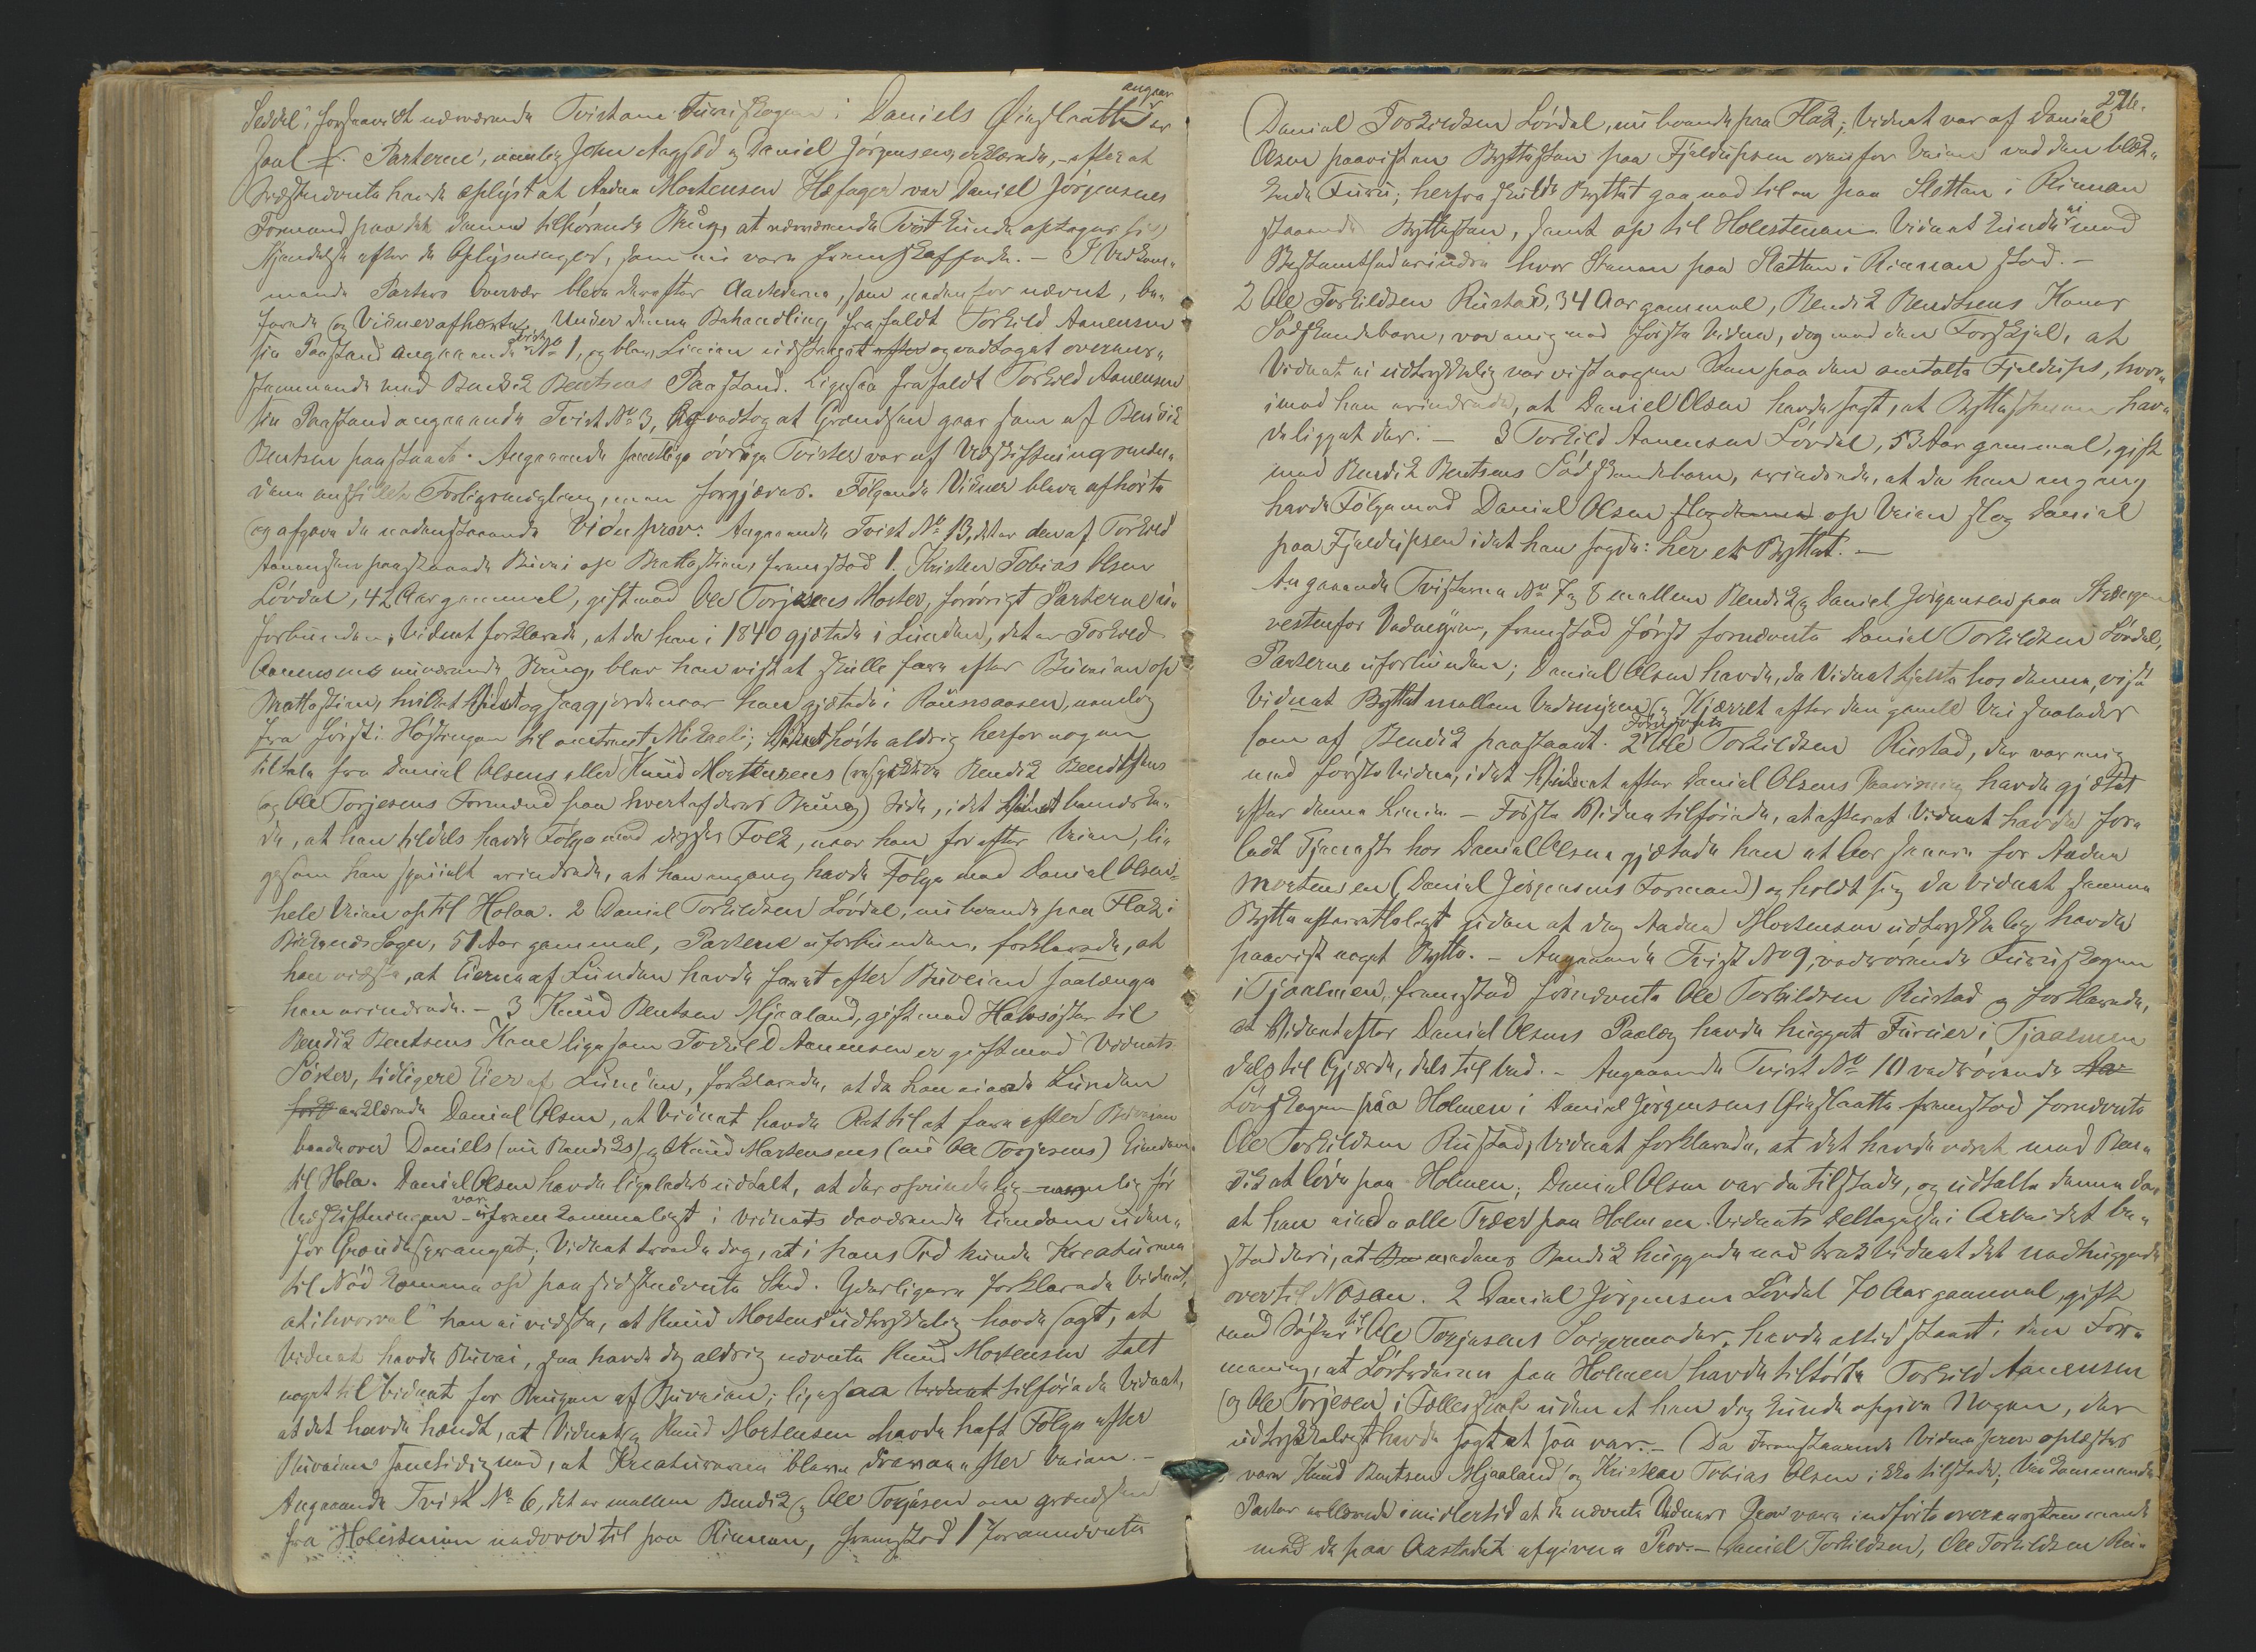 angaar
Seddel", forsaavidt nedværende Tvist om Furuskogen i Daniels Øieslaatte er
Joel. Parterne, nemlig John Aagsød og Daniel Jörgensen erklærede, efterat
Sidstnævnte havde oplyst at Aadne Mortensen Hæfager var Daniel Jörgensens
Formand paa det denne tilhörende Brug, at nærværende Tvist kunde optages til
Kjendelse efter de Oplysninger, som nu vare fremskaffede. - I Vedkom-
mende Parters Overvær bleve derefter Aastederne, som nedenfor nævnt, be-
farede og Vidner afhørte. Under denne Behandling frafaldt Torkild Aanensen
sin Paastand angaaende Tvist No 1, og blev Linien udstukket og vedtaget overens-
stemmende med Bendik Bentsens Paastand. Ligesaa frafaldt Torkild Aanensen
sin Paastand angaaende Tvist No 3, og vedtog at Grændsen gaar som af Bendik
Bentsen paastaaet. Angaaende samtlige övrige Tvister var af Udskiftningsmæn-
dene anstillet Forligsmægling, men forgjæves. Fölgende Vidner bleve afhörte
og afgave de nedenstaaende Vidneprov: Angaaende Tvist No 13, det er den af Torkild
Aanensen paastaaede Buvei op Brattestien, fremstod 1. Kristen Tobias Olsen
Lövdal, 42 Aar gammel, gift med Ole Torjesens Moster, forövrigt Parterne u-
forbunden; Vidnet forklarede, at da han i 1840 gjætede i Lunden, det er Torkild
Aanensens nuværende Brug, blev han vist at skulle fare efter Buveien op
Brattestien, hvilket Vidnet ogsaa gjorde naar han gjætede i Raunsaasen, nemlig
fra först i Høstningen til omtrent Mikaeli; Vidnet hörte aldrig herfor nogen
Tiltale fra Daniel Olsens eller Knud Mortensens (respektive Bendik Bendtsens
og Ole Torjesens Formænd paa hvert af deres Brug) Side, idet Vidnet bemærke-
de, at han tildels havde Fölge med disses Folk, naar han for efter Veien, li-
gesom han specielt erindrede, at han engang havde Fölge med Daniel Olsen
hele Veien op til Holaa. 2 Daniel Torkildsen Lövdal, nu boende paa Flak i
Birkenes Sogn, 51 Aar gammel, Parterne uforbunden, forklarede, at
han vidste, at Eierne af Lunden havde faret efter Buveien saalænge
han erindrede. - 3 Knud Bentsen Mjaaland, gift med Halvsöster til
Bendik Bentsens Kone ligesom Torkild Aanensen er gift med Vidnets
Söster, tidligere Eier af Lunden, forklarede, at da han eiede Lunden
erklærede Daniel Olsen, at Vidnet havde Ret til at fare efter Buveien
baade over Daniels (nu Bendiks) og Knud Mortensens (nu Ole Torjesens) Eiendom
til Hola. Daniel Olsen havde ligeledes udtalt, at der oprindelig - nemlig för
Udskiftningen - var ufremkommeligt i Vidnets daværende Eiendom uden-
for Grændsegangen; Vidnet troede dog, at i hans Tid kunde Kreaturerne
til Nöd komme op paa sidstnævnte Sted. Yderligere forklarede Vidnet,
at ihvorvel han ei vidste, at Knud Mortensen udtrykkelig havde sagt, at
Vidnet havde Buvei, saa havde dog aldrig nævnte Knud Mortensen talt
noget til Vidnet for Brugen af Buveien; ligesaa tilföiede Vidnet,
at det havde hændt, at Vidnet og Knud Mortensen havde haft Fölge efter
Buveien samtidig med, at Kreaturerne bleve drevne efter Veien. -
Angaaende Tvist No 6, det er mellem Bendik og Ole Torjesen om Grændsen
fra Holestenen nedover til paa Rimen, fremstod 1 forannævnte
291.
Daniel Torkildsen Lövdal, nu boende paa Flak; Vidnet var af Daniel
Olsen paavist en Byttesten paa Fjeldupsen ovenfor Veien ved den blek-
kede Furu; herfra skulde Byttet gaa ned til en paa Sletten i Rimen
staaende Byttesten, samt op til Holestenen. Vidnet kunde ei med
Bestemthed erindre hvor Stenen paa Sletten i Rimen stod. -
2 Ole Torkildsen Rustad, 34 Aar gammel, Bendik Bendtsens Kones
Södskendebarn, var enig med förste Vidne, dog med den Forskjel, at
Vidnet ei udtrykkelig var vist nogen Sten paa den omtalte Fjeldups, hvor-
imod han erindrede, at Daniel Olsen havde sagt, at Byttestenen hav-
de ligget der. - 3 Torkild Aanensen Lövdal, 53 Aar gammel, gift
med Bendik Bentsens Södskendebarn, erindrede, at da han engang
havde Fölge med Daniel Olsen op Veien slog Daniel
paa Fjeldupsen idet han sagde: her er Byttet. -
Angaaende Tvisterne No 7 og 8 mellem Bendik og Daniel Jörgensen paa
vestenfor Vadmyren, fremstod först fornævnte Daniel Torkildsen Lövdal,
Parterne uforbunden; Daniel Olsen havde, da Vidnet tjente hos denne, vist
Vidnet Byttet mellem Vadmyren og Kjærret efter den gamle Vei saaledes
som af Bendik paastaaet. 2 fornævnte Ole Torkildsen Rustad, der var enig
med förste Vidne, idet Vidnet efter Daniel Olsens Paavisning havde gjætet
efter denne Linie. - Förste Vidne tilföiede, at efterat Vidnet havde for-
ladt Tjeneste hos Daniel Olsen gjætede han et Aar senere for Aadne
Mortensen (Daniel Jörgensens Formand) og holdt sig da Vidnet samme
Bytte efterrettelegt uden at dog Aadne Mortensen udtrykkelig havde
paavist noget Bytte. - Angaaende Tvist No 9, vedrörende Furuskogen
i Tjaalmen, fremstod fornævnte Ole Torkildsen Rustad og forklarede,
at Vidnet efter Daniel Olsens Paalæg havde hugget Furuer i Tjaalmen
dels til Gjærde, dels til Ved. - Angaaende Tvist No 10 vedrörende
Lövskogen paa Holmen i Daniel Jörgensens Øieslaatte fremstod fornævnte
Ole Torkildsen Rustad; Vidnet forklarede, at det havde været med Ben-
dik at löve paa Holmen; Daniel Olsen var da tilstede, og udtalte denne da
at han eiede alle Træer paa Holmen. Vidnets Deltagelse i Arbeidet be-
stod deri, at medens Bendik huggede ned trak Vidnet det nedhuggede
over til Nosan. 2 Daniel Jörgensen Lövdal 70 Aar gammel, gift
med Söster til Ole Torjesens Svigermoder, havde altid staaet i den For-
mening, at Lövtræerne paa Holmen havde tilhört Torkild Aanensen
og Ole Torjesen i Fællesskab uden at han dog kunde opgive Nogen, der
udtrykkeligt havde sagt at saa var. - Da Foranstaaende Vidneprov oplæstes
vare Knud Bentsen Mjaaland og Kristen Tobias Olsen ikke tilstede; Vedkommende
Parter erklærede imidlertid at de nævnte Vidners Prov vare indförte overensstemmende
med de paa Aastedet afgivne Prov. - Daniel Torkildsen, Ole Torkildsen Ru-